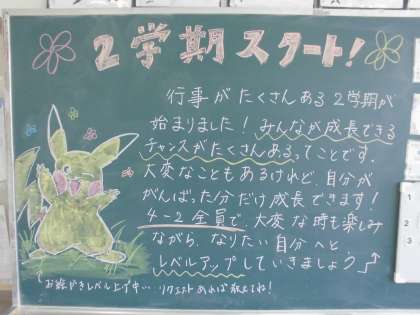 2学期スタート!
行事がたくさんある2学期が
始まりました!みんなが成長できる
チャンスがたくさんあるってことです。
大変なこともあるけれど、自分が
がんばった分だけ成長できます!
4-2全員で、大変な時も楽しみ
ながら、なりたい自分へと、
レベルアップしていきましょう♪
お絵かきレベル上げ中…リクエストあれば教えてね!
1
2
3